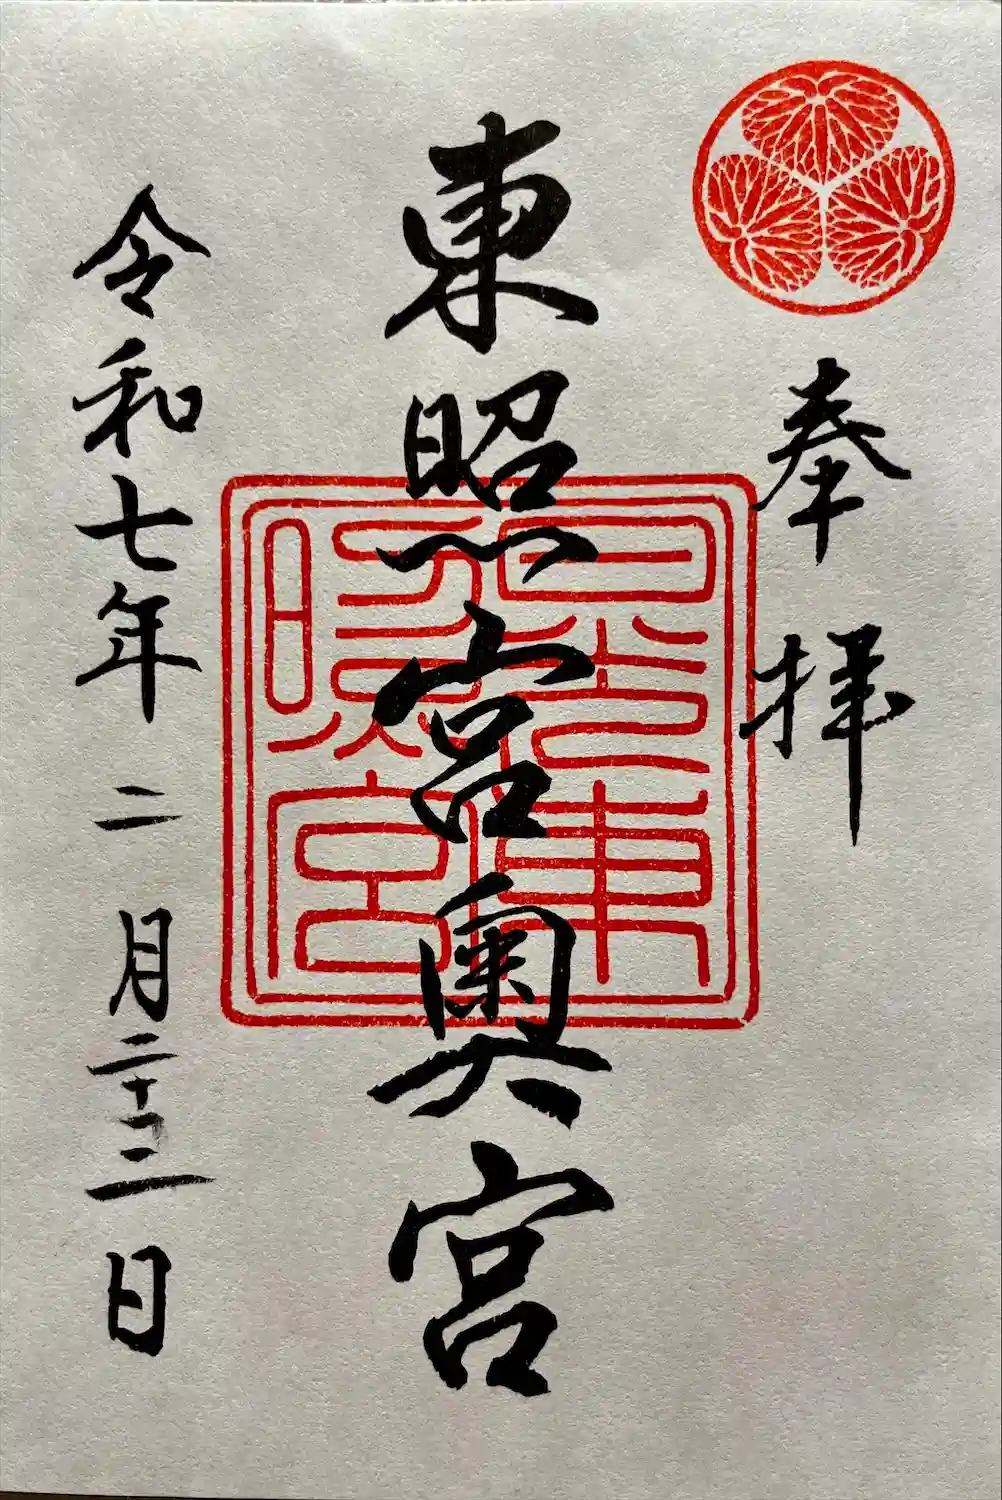 奉拝
東照宮奥宮
日光東
照宮
令和七年二月二十三日